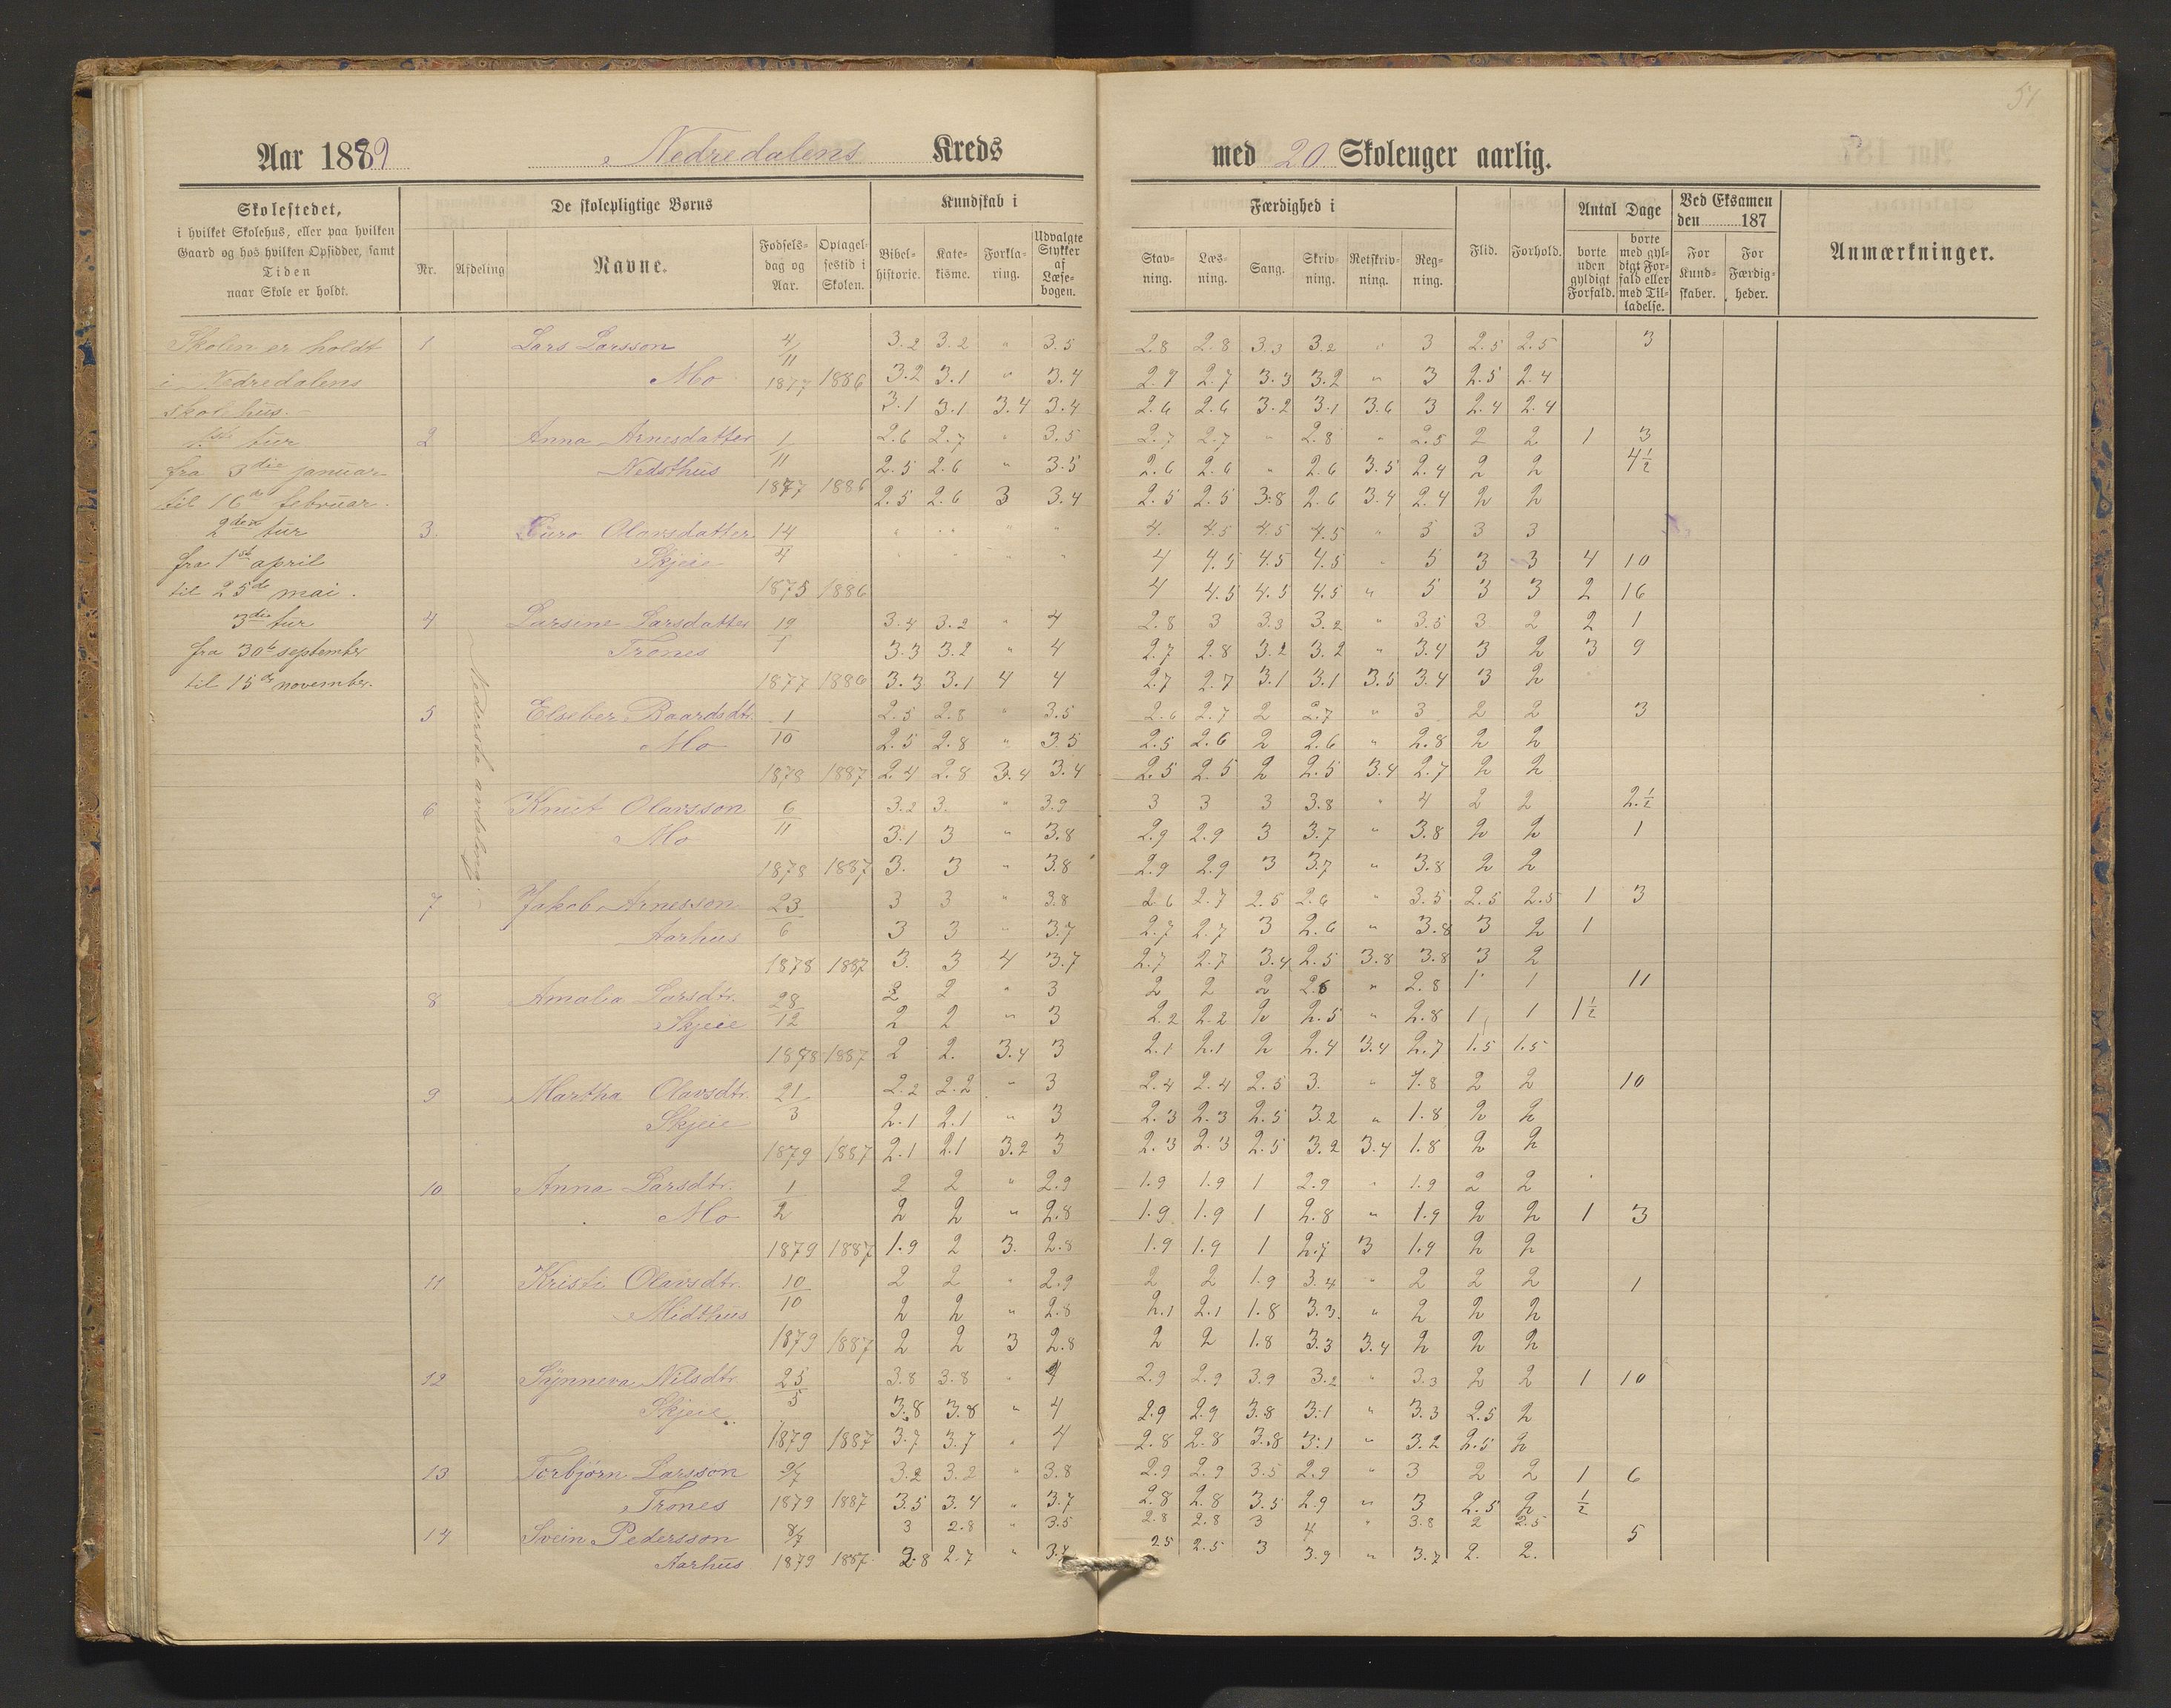 57
Aar 1889 Nedredalens Kreds med 20 Skoleuger aarlig.
Skolestedet, i hvilket Skolehus, eller paa hvilken Gaard og hos hvilken Opsidder, samt Tiden naar Skole er holdt.
De skolepligtige Børns
Nr. Afdeling Navne. Fødselsdag og Aar. Optagelsestid i Skolen.
Kundskab i
Bibelhistorie. Katekisme. Forklaring. Udvalgte Stykker af Læsebogen.
Færdighed i
Stavning. Læsning. Sang. Skrivning. Retskrivning. Regning.
Flid. Forhold.
Antal Dage
borte uden gyldigt Forfald. borte med gyldigt Forfald eller med Tilladelse.
Ved Eksamen den 187
For Kundskaber. For Færdigheder.
Anmærkninger.
Skolen er holdt
i Nedredalens
skolehus.
1ste tur
fra 3die januar
til 16de februar.
2den tur
fra 1ste april
til 25de mai.
3die tur
fra 30te september
til 15de november.
Nederste avdeling.
1 Lars Larsson 4/11 3.2 3.2 " 3.5 2.8 2.8 3.3 3.2 " 3 2.5 2.5 3
Mo 1877 1886 3.2 3.1 " 3.4 2.7 2.7 3.3 3.2 " 3 2.5 2.4
3.1 3.1 3.4 3.4 2.6 2.6 3.2 3.1 3.6 3 2.4 2.4
2 Anna Arnesdatter 1/11 2.6 2.7 " 3.5 2.7 2.7 " 2.8 " 2.5 2 2 1 3
Nedsthus 2.5 2.6 " 3.5 2.6 2.6 " 2.6 3.5 2.4 2 2 4½
1877 1886 2.5 2.6 3 3.4 2.5 2.5 3.8 2.6 3.4 2.4 2 2
3. Guro Olavsdatter 14/4 " " " " 4. 4.5 4.5 4.5 " 5 3 3
Skjeie " " " " 4 4.5 4.5 4.5 " 5 3 3 4 10
1875 1886 4 4.5 4.5 4.5 " 5 3 3 2 16
4 Larsine Larsdatter 19/1 3.4 3.2 " 4 2.8 3 3.3 3.2 " 3.5 3 2 2 1
Trones 3.3 3.2 " 4 2.7 2.8 3.2 3.2 " 3.4 3 2 3 9
1877 1886 3.3 3.1 4 4 2.7 2.7 3.1 3.1 3.5 3.4 3 2
5 Elseber Baardsdtr. 1/10 2.5 2.8 " 3.5 2.6 2.7 2 2.7 " 3 2 2 3
Mo 2.5 2.8 " 3.5 2.5 2.6 2 2.6 " 2.8 2 2
1878 1887 2.4 2.8 3.4 3.4 2.5 2.5 2 2.5 3.4 2.7 2 2
6 Knut Olavsson 6/11 3.2 3. " 3.9 3 3 3 3.8 " 4 2 2 2.½
Mo 3.1 3 " 3.8 2.9 2.9 3 3.7 " 3.8 2 2 1
1878 1887 3. 3 " 3.8 2.9 2.9 3 3.7 " 3.8 2 2
7 Jakob Arnesson 23/6 3 3 " 3.8 2.6 2.7 2.5 2.6 " 3.5 2.5 2.5 1 3
Aarhus 3 3 " 3.7 2.7 2.7 3 2.6 " 3.8 3 2 1
1878 1887 3. 3 4 3.7 2.7 2.7 3.4 2.5 3.8 3.8 3 2
8 Amalia Larsdtr. 28/12 2 2 " 3 2 2 2 2.6 " 2.8 1 1 11
Skjeie 2 2 " 3 2.2 2.2 2 2.5 " 2.8 1 1 1½
1878 1887 2 2. 3.4 3 2.1 2.1 2 2.4 3.4 2.7 1.5 1.5
9 Martha Olavsdtr. 21/3 2.2 2.2 " 3 2.4 2.4 2.5 3. " 1.8 2 2 10
Skjeie 2.1 2.1 " 3 2.3 2.3 2.5 3.2 " 1.8 2 2
1879 1887 2.1 2.1 3.2 3 2.3 2.3 2.5 3.2 3.4 1.8 2 2
10 Anna Larsdtr. 1/2 2 2 " 2.9 1.9 1.9 1 2.9 " 1.9 2 2
Mo 2 2 " 2.8 1.9 1.9 1 2.8 " 1.9 2 2 1 3
1879 1887 1.9 2 3. 2.8 1.9 1.9 1 2.7 3 1.9 2 2
11 Kristi Olavsdtr. 10/10 2 2 " 2.9 2 2 1.9 3.4 " 2 2 2 1
Midthus 2 2 " 2.8 2.1 2.1 1.8 3.3. " 2 2 2
1879 1887 2 2 3 2.8 2 2 1.8 3.3 3.4 2 2 2
12 Synneva Nilsdtr. 25/5 3.8 3.8 " 4 2.9 2.9 3.9 3.2 " 3.3 2 2 1 10
Skjeie 3.8 3.8 " 4 2.9 2.9 3.8 3.1 " 3.3 2.5 2
1879 1887 3.7 3.7 " 4 2.8 2.8 3.8 3.1 " 3.2 2.5 2
13 Torbjørn Larsson 9/7 3.2 3.2 " 3.8 2.9 2.9 3.5 2.9 " 3 2 2 1 6
Trones 1879 1887 3.5 3.4 " 3.7 2.8 2.8 3.5 2.9 " 3 2.5 2 ½
14 Svein Pedersson 8/7 3 2.8 " 3.5 2.8 2.8 3 4 " 3.8 2 2.5 5
Aarhus 1879 1887 2.8 2.7 " 3.4 2.5 2.5 3 3.9 " 3.7 2. 2.